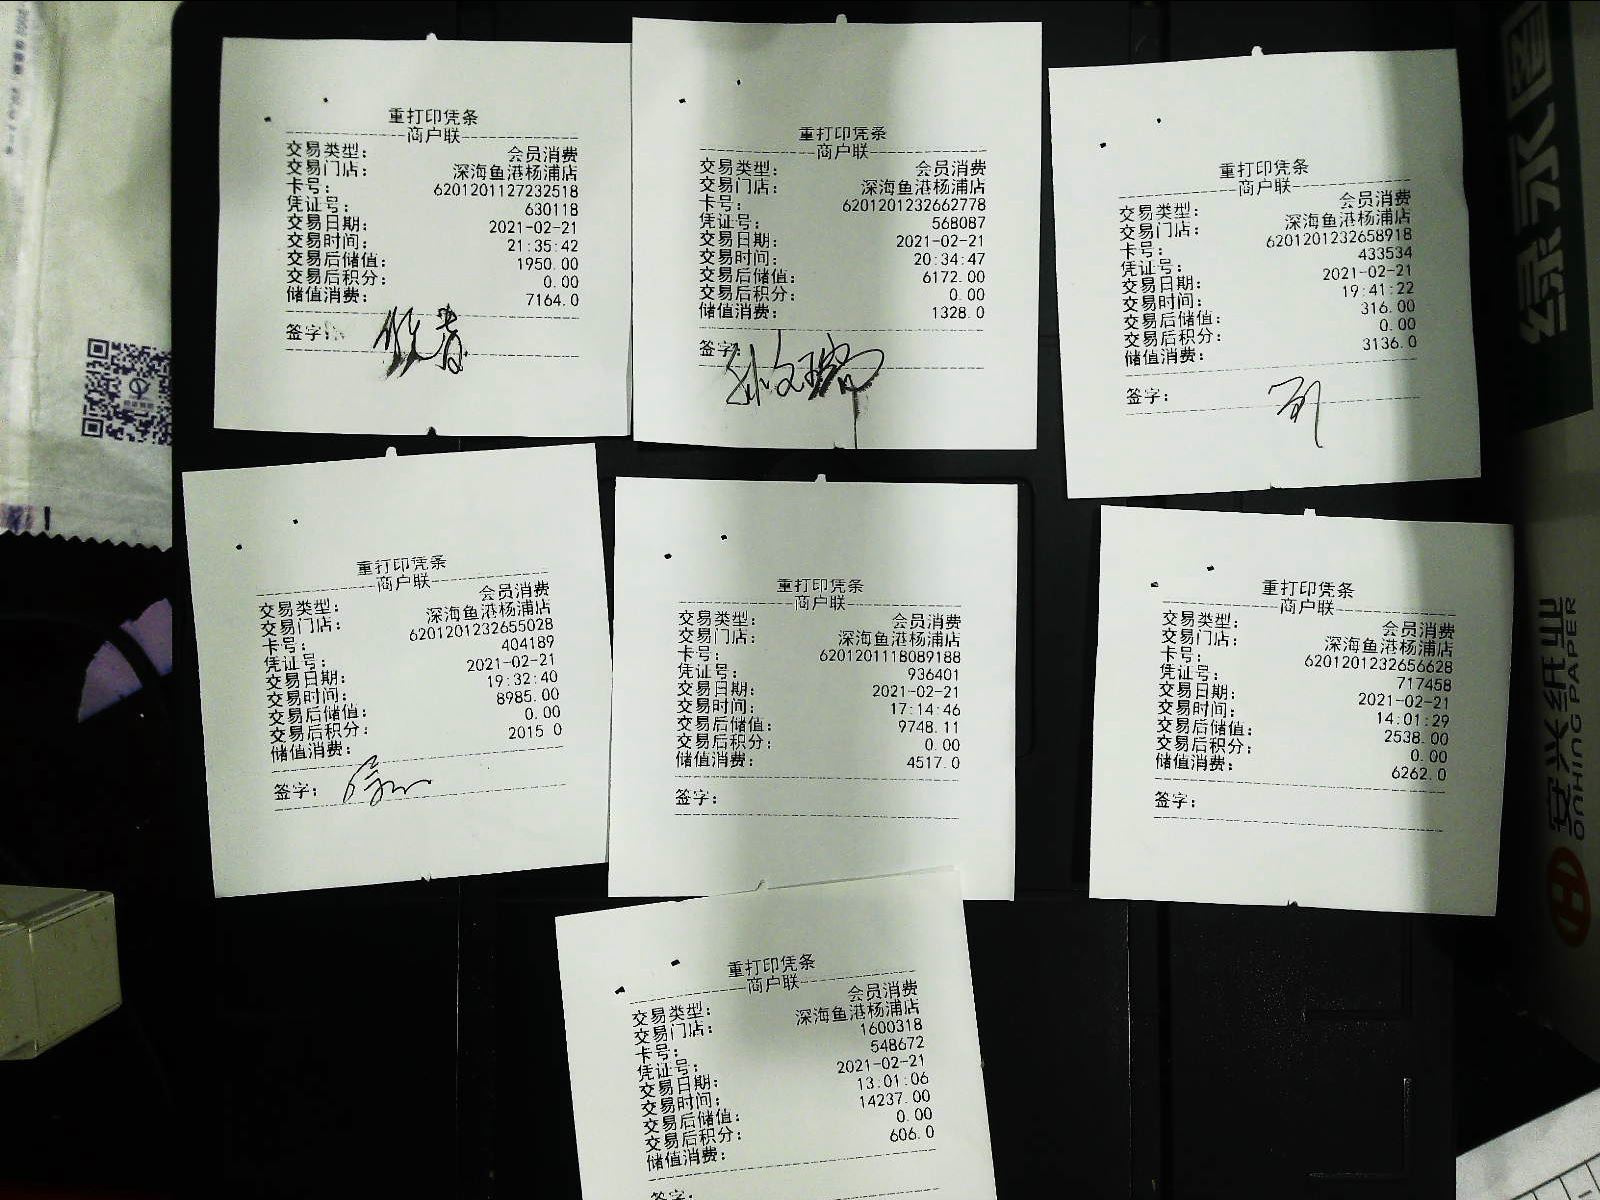 重打印凭条
商户联
交易类型: 会员消费
交易门店: 深海鱼港杨浦店
卡号: 6201201127232518
凭证号: 630118
交易日期: 2021-02-21
交易时间: 21:35:42
交易后储值: 1950.00
交易后积分: 0.00
储值消费: 7164.0
签字:
重打印凭条
商户联
交易类型: 会员消费
交易门店: 深海鱼港杨浦店
卡号: 6201201232662778
凭证号: 568087
交易日期: 2021-02-21
交易时间: 20:34:47
交易后储值: 6172.00
交易后积分: 0.00
储值消费: 1328.0
签字:
重打印凭条
商户联
交易类型: 会员消费
交易门店: 深海鱼港杨浦店
卡号: 6201201232658918
凭证号: 433534
交易日期: 2021-02-21
交易时间: 19:41:22
交易后储值: 316.00
交易后积分: 0.00
储值消费: 3136.0
签字:
重打印凭条
商户联
交易类型: 会员消费
交易门店: 深海鱼港杨浦店
卡号: 6201201232655028
凭证号: 404189
交易日期: 2021-02-21
交易时间: 19:32:40
交易后储值: 8985.00
交易后积分: 0.00
储值消费: 2015 0
签字:
重打印凭条
商户联
交易类型: 会员消费
交易门店: 深海鱼港杨浦店
卡号: 6201201118089188
凭证号: 936401
交易日期: 2021-02-21
交易时间: 17:14:46
交易后储值: 9748.11
交易后积分: 0.00
储值消费: 4517.0
签字:
重打印凭条
商户联
交易类型: 会员消费
交易门店: 深海鱼港杨浦店
卡号: 6201201232656628
凭证号: 717458
交易日期: 2021-02-21
交易时间: 14:01:29
交易后储值: 2538.00
交易后积分: 0.00
储值消费: 6262.0
签字:
重打印凭条
商户联
交易类型: 会员消费
交易门店: 深海鱼港杨浦店
卡号: 1600318
凭证号: 548672
交易日期: 2021-02-21
交易时间: 13:01:06
交易后储值: 14237.00
交易后积分: 0.00
储值消费: 606.0
签字:
安兴纸业
ONHING PAPER